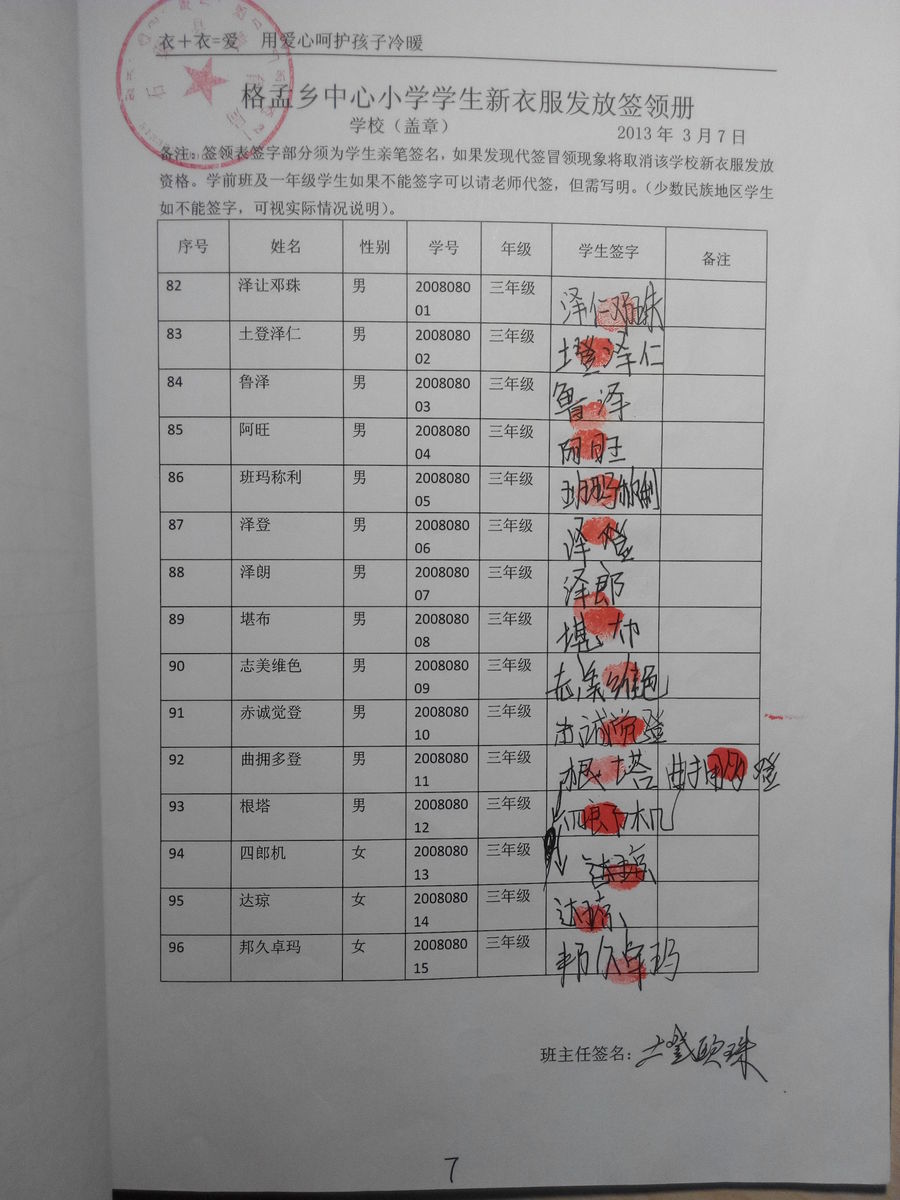 衣＋衣=爱 用爱心呵护孩子冷暖
格孟乡中心小学学生新衣服发放签领册
学校（盖章） 2013 年 3 月 7 日
备注：签领表签字部分须为学生亲笔签名，如果发现代签冒领现象将取消该学校新衣服发放
资格。学前班及一年级学生如果不能签字可以请老师代签，但需写明。（少数民族地区学生
如不能签字，可视实际情况说明）。
序号 姓名 性别 学号 年级 学生签字 备注
82 泽让邓珠 男 2008080 三年级 泽仁邓珠
01
83 土登泽仁 男 2008080 三年级 土登泽仁
02
84 鲁泽 男 2008080 三年级 鲁泽
03
85 阿旺 男 2008080 三年级 阿旺
04
86 班玛称利 男 2008080 三年级 班玛称利
05
87 泽登 男 2008080 三年级 泽登
06
88 泽朗 男 2008080 三年级 泽郎
07
89 堪布 男 2008080 三年级 堪布
08
90 志美维色 男 2008080 三年级 志美维色
09
91 赤诚觉登 男 2008080 三年级 赤诚觉登
10
92 曲拥多登 男 2008080 三年级 根塔 曲拥多登
11
93 根塔 男 2008080 三年级
12
94 四郎机 女 2008080 三年级 达琼
13
95 达琼 女 2008080 三年级 达琼
14
96 邦久卓玛 女 2008080 三年级 邦久卓玛
15
班主任签名：土登
7